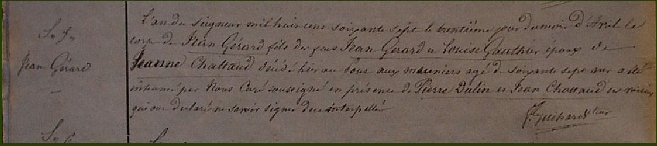 S. f.
Jean Gérard
L'an du Seigneur mil huit cent soixante sept le trentième jour du mois d'Avril le
corps de Jean Gérard fils de feus Jean Gérard et Louise Gauthier époux de
Jeanne Chattaud décédé hier au bouc aux meuniers agé de soixante sept ans a été
inhumé par Nous Curé soussigné en présence de Pierre Dulin et Jean Chattaud ses voisins
qui ont déclaré ne savoir signer de ce interpellé
S. f.